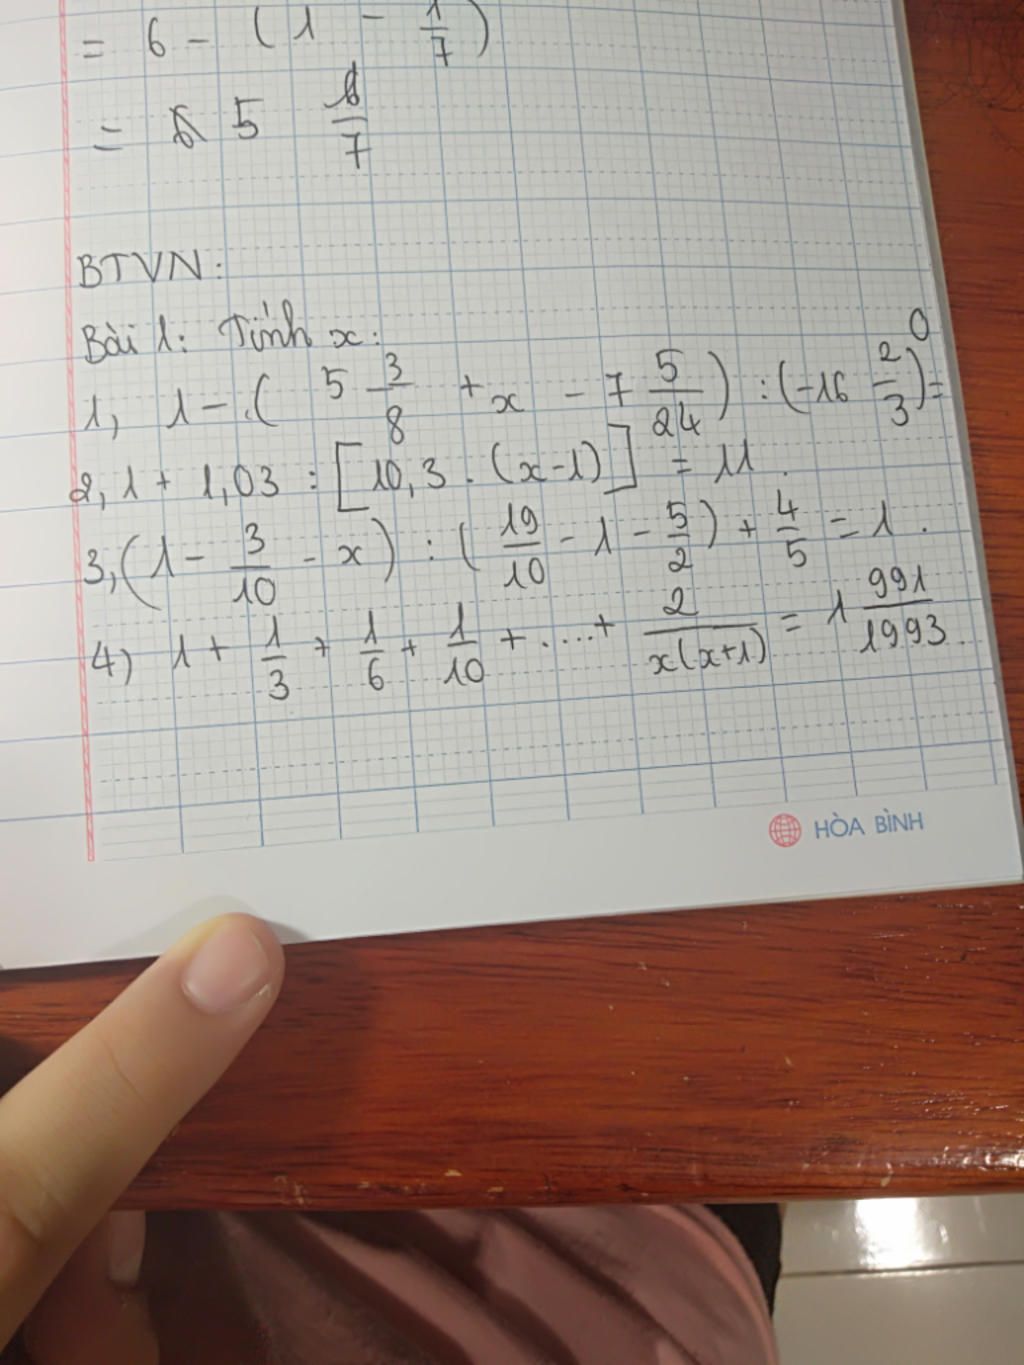 = 6 - ( 1 - 1/7 )
= 5 1/7
BTVN:
Bài 1: Tính x:
1, 1 - ( 5 3/8 + x - 7 5/24 ) : (-16 2/3) = 0
2, 1 + 1,03 : [ 10,3 . (x-1) ] = 11 .
3, ( 1 - 3/10 - x ) : ( 19/10 - 1 - 5/2 ) + 4/5 = 1 .
4) 1 + 1/3 + 1/6 + 1/10 + .... + 2/x(x+1) = 1 991/1993 .
HÒA BÌNH